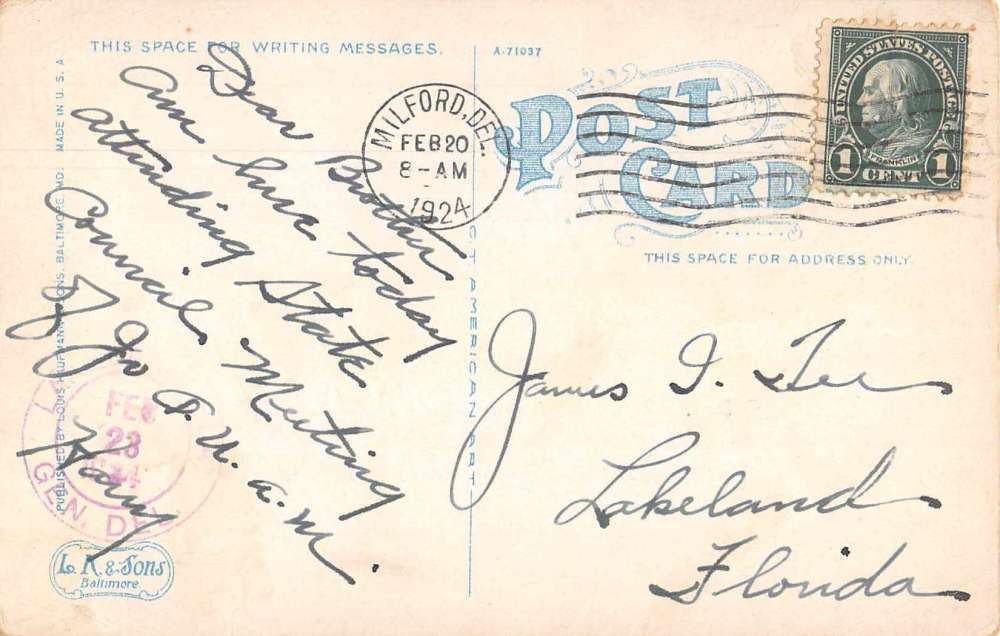 THIS SPACE FOR WRITING MESSAGES.
A-71037
POST
CARD
UNITED STATES POSTAGE
FRANKLIN
1 CENT 1
MILFORD, DEL.
FEB 20
8-AM
1924
THIS SPACE FOR ADDRESS ONLY.
Dear Brother
am here today
attending State
Council Meeting
of Jr O. U. A. M.
Harry
James I. Lee
Lakeland
Florida
FEB
23
GEN. DE
PUBLISHED BY LOUIS KAUFMANN & SONS, BALTIMORE, MD. MADE IN U. S. A.
AMERICAN ART
L. K. & Sons
Baltimore